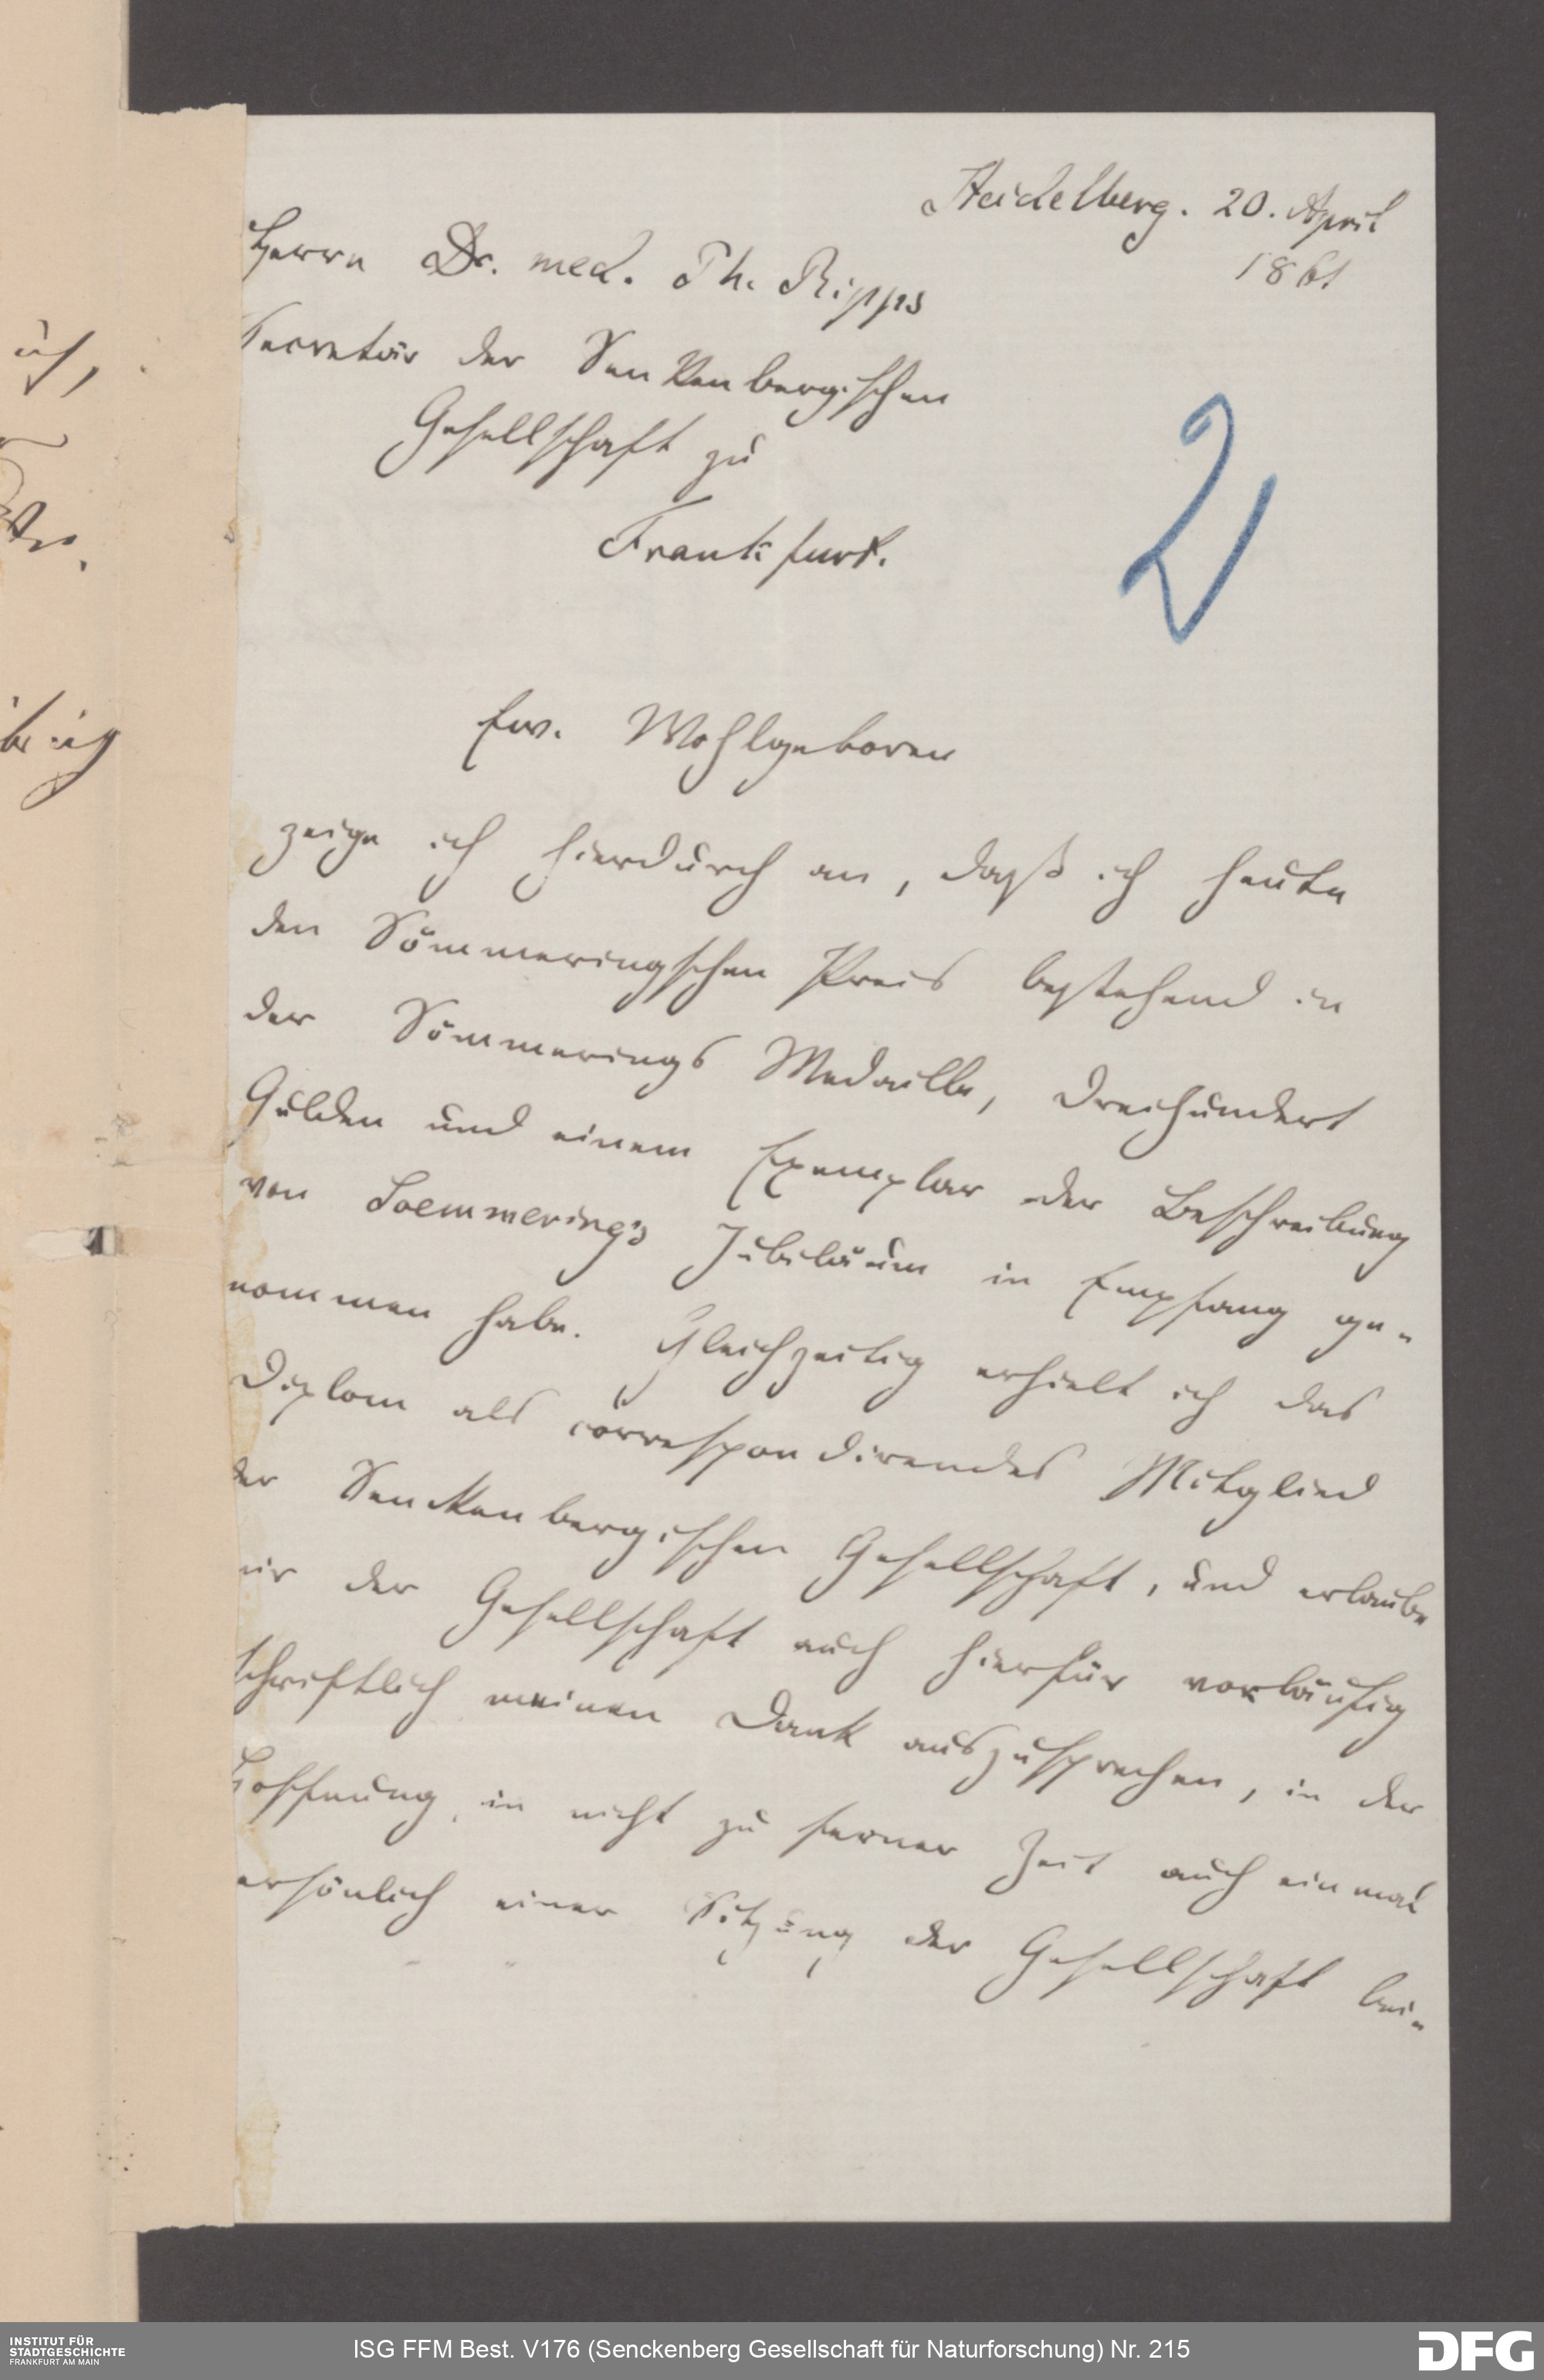 Heidelberg. 20. April
1861
Herrn Dr. med. Th. Ripps
Secretär der Senkenbergischen
Gesellschaft zu
Frankfurt.
2
Ew. Wohlgeboren
zeige ich hierdurch an, daß ich heute
den Sömmeringschen Preis bestehend in
der Sömmerings Medaille, dreihundert
Gulden und einem Exemplar der Beschreibung
von Soemmering's Jubiläum in Empfang ge-
nommen habe. Gleichzeitig erhielt ich das
Diplom als correspondirendes Mitglied
der Senckenbergischen Gesellschaft, und erlaube
mir der Gesellschaft auch hierfür vorläufig
schriftlich meinen Dank auszusprechen, in der
Hoffnung, in nicht zu ferner Zeit auch einmal
ersönlich einer Sitzung der Gesellschaft bei-
INSTITUT FÜR
STADTGESCHICHTE
FRANKFURT AM MAIN
ISG FFM Best. V176 (Senckenberg Gesellschaft für Naturforschung) Nr. 215
DFG